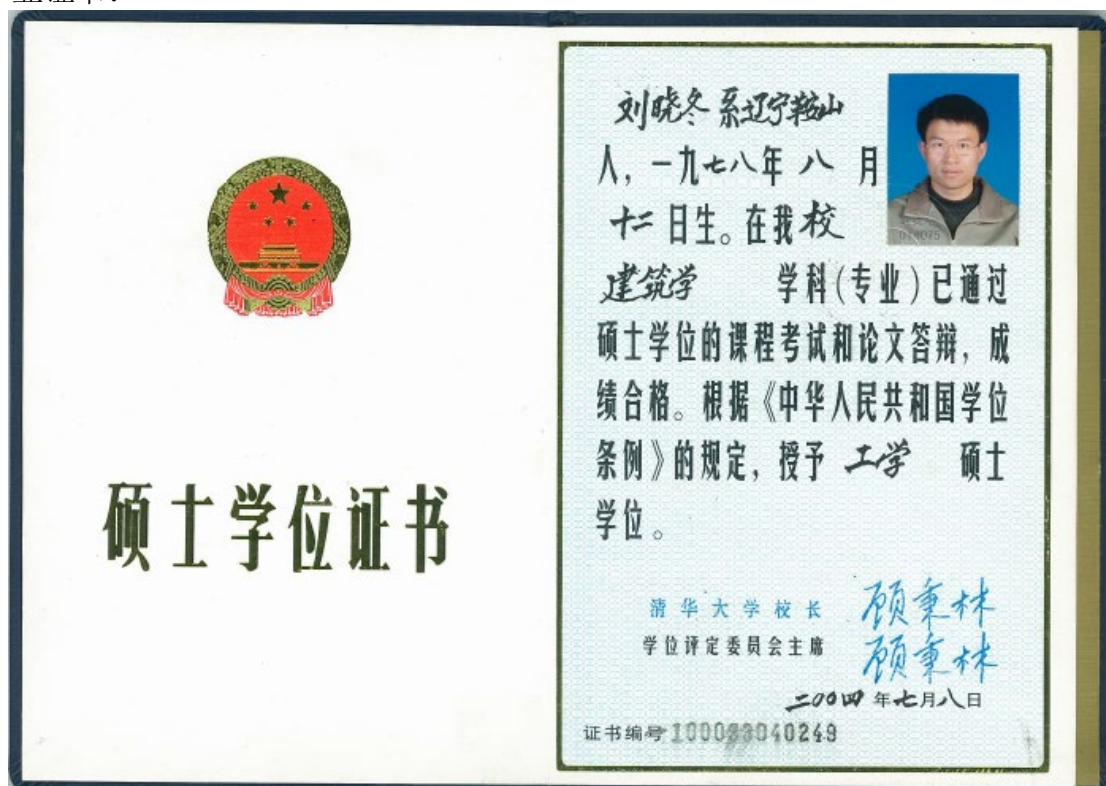 硕士学位证书
刘晓冬 系辽宁鞍山
人，一九七八年 八 月
十二 日生。在我校
建筑学 学科(专业)已通过
硕士学位的课程考试和论文答辩，成
绩合格。根据《中华人民共和国学位
条例》的规定，授予 工学 硕士
学位。
清华大学校长 顾秉林
学位评定委员会主席 顾秉林
二〇〇四 年七月八日
证书编号